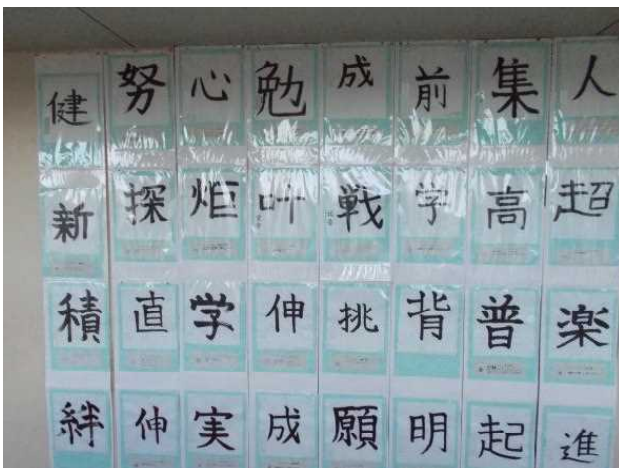 健 努 心 勉 成 前 集 人
新 探 炬 叶 戦 学 高 超
積 直 学 伸 挑 背 普 楽
絆 伸 実 成 願 明 起 進